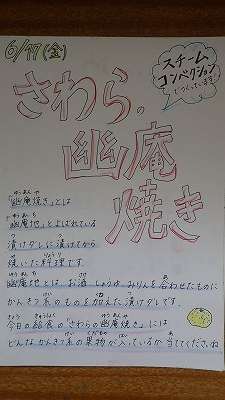 6/17(金)
スチーム
コンベクション
でつくっています!
さわらの
幽庵
焼き
"幽庵焼き"とは
"幽庵地"とよばれている
漬けタレに漬けてから
焼いた料理です。
幽庵地とは、お酒、しょうゆ、みりんを合わせたものに
かんきつ系のものを加えた、漬けタレです。
今日の給食の"さわらの幽庵焼き"には
どんなかんきつ系の果物が入っているか 当ててくださいね